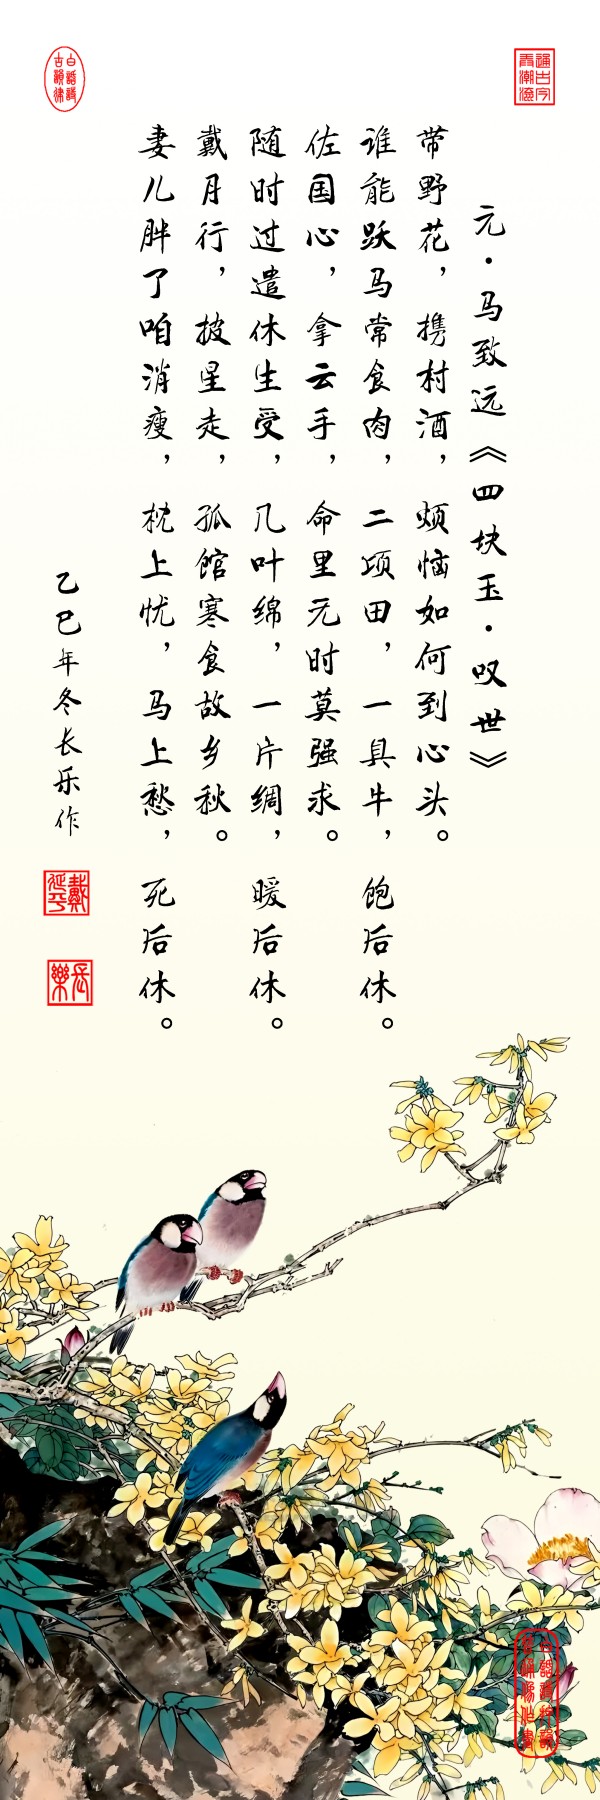 元·马致远《四块玉·叹世》
带野花，携村酒，烦恼如何到心头。
谁能跃马常食肉，二顷田，一具牛，饱后休。
佐国心，拿云手，命里无时莫强求。
随时过遣休生受，几叶绵，一片绸，暖后休。
戴月行，披星走，孤馆寒食故乡秋。
妻儿胖了咱消瘦，枕上忧，马上愁，死后休。
乙巳年冬长乐作
白話詩
古韻律
戴
長樂